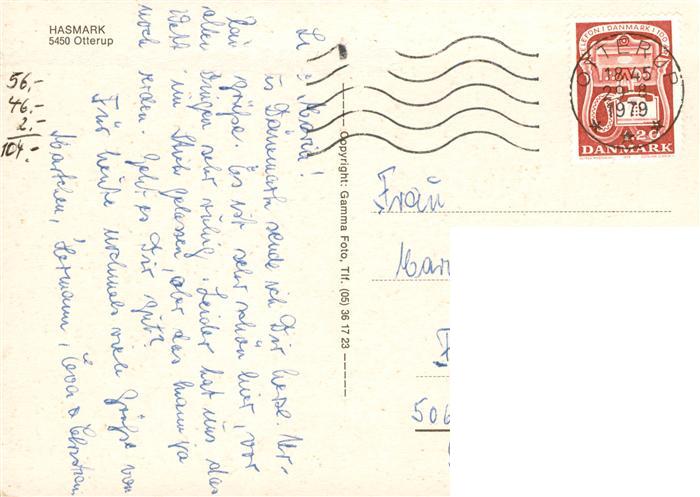 HASMARK
5450 Otterup
56,-
46,-
2,-
104,-
Maria!
Dänemark sende ich Dir herzl. Ur-
grüße. Es ist sehr schön hier, vor
allen Dingen sehr ruhig. Leider hat uns das
im Stich gelassen, aber das kann ja
noch werden. Geht es Dir gut?
Für heute nochmals viele Grüße von
Hermann, Eva & Christian
Copyright: Gamma Foto, Tlf. (05) 36 17 23
TELEFON I DANMARK I 100
DANMARK
OTTERUP
18.45
29-8
1979
Frau
506